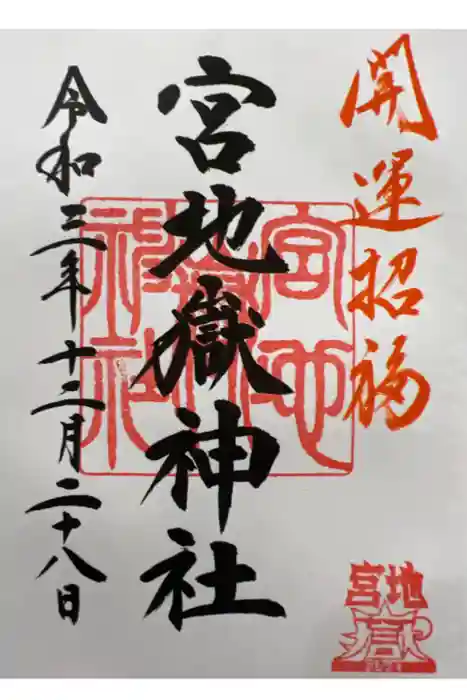 開運招福
宮地嶽神社
令和三年十二月二十八日
宮地嶽神社
宮地
嶽